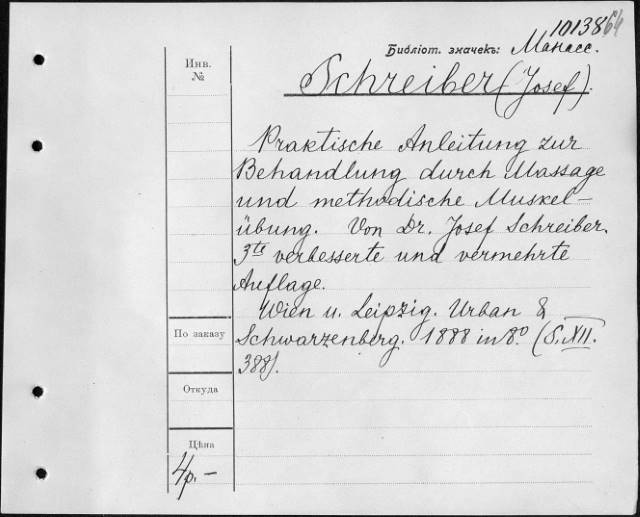 1013864
Библіот. значекъ: Манасс.
Инв.
№
Schreiber (Josef).
Praktische Anleitung zur
Behandlung durch Massage
und methodische Muskel-
übung. Von Dr. Josef Schreiber.
3te verbesserte und vermehrte
Auflage.
Wien u. Leipzig. Urban &
Schwarzenberg. 1888 in 8º (S. XII.
388).
По заказу
Откуда
Цѣна
4 р. –